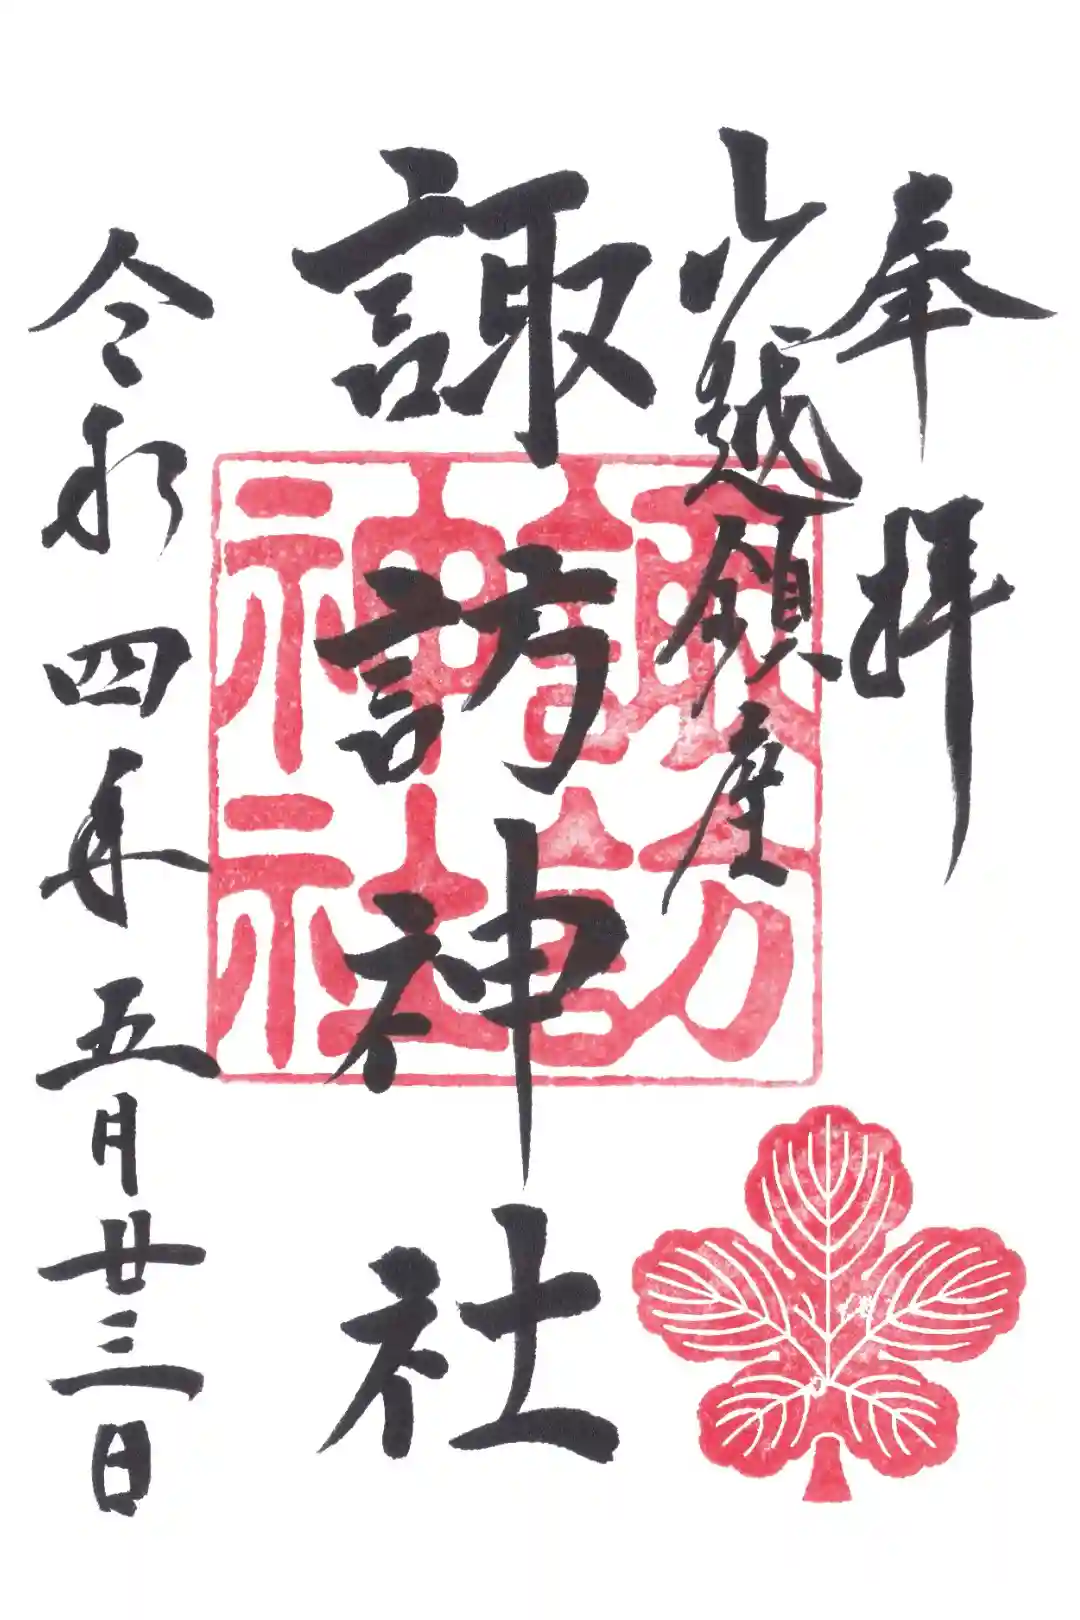 奉拝
山越鎮座
諏訪神社
諏訪神社
令和四年五月廿三日